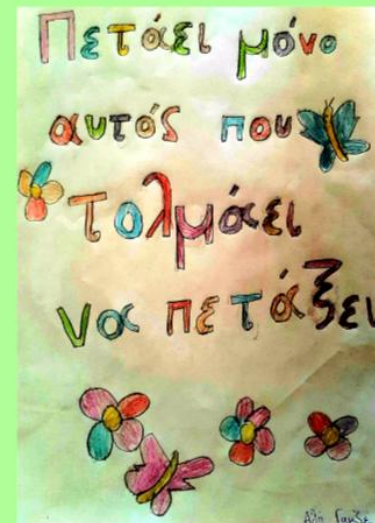 Πετάει μόνο
αυτός που
τολμάει
να πετάξει